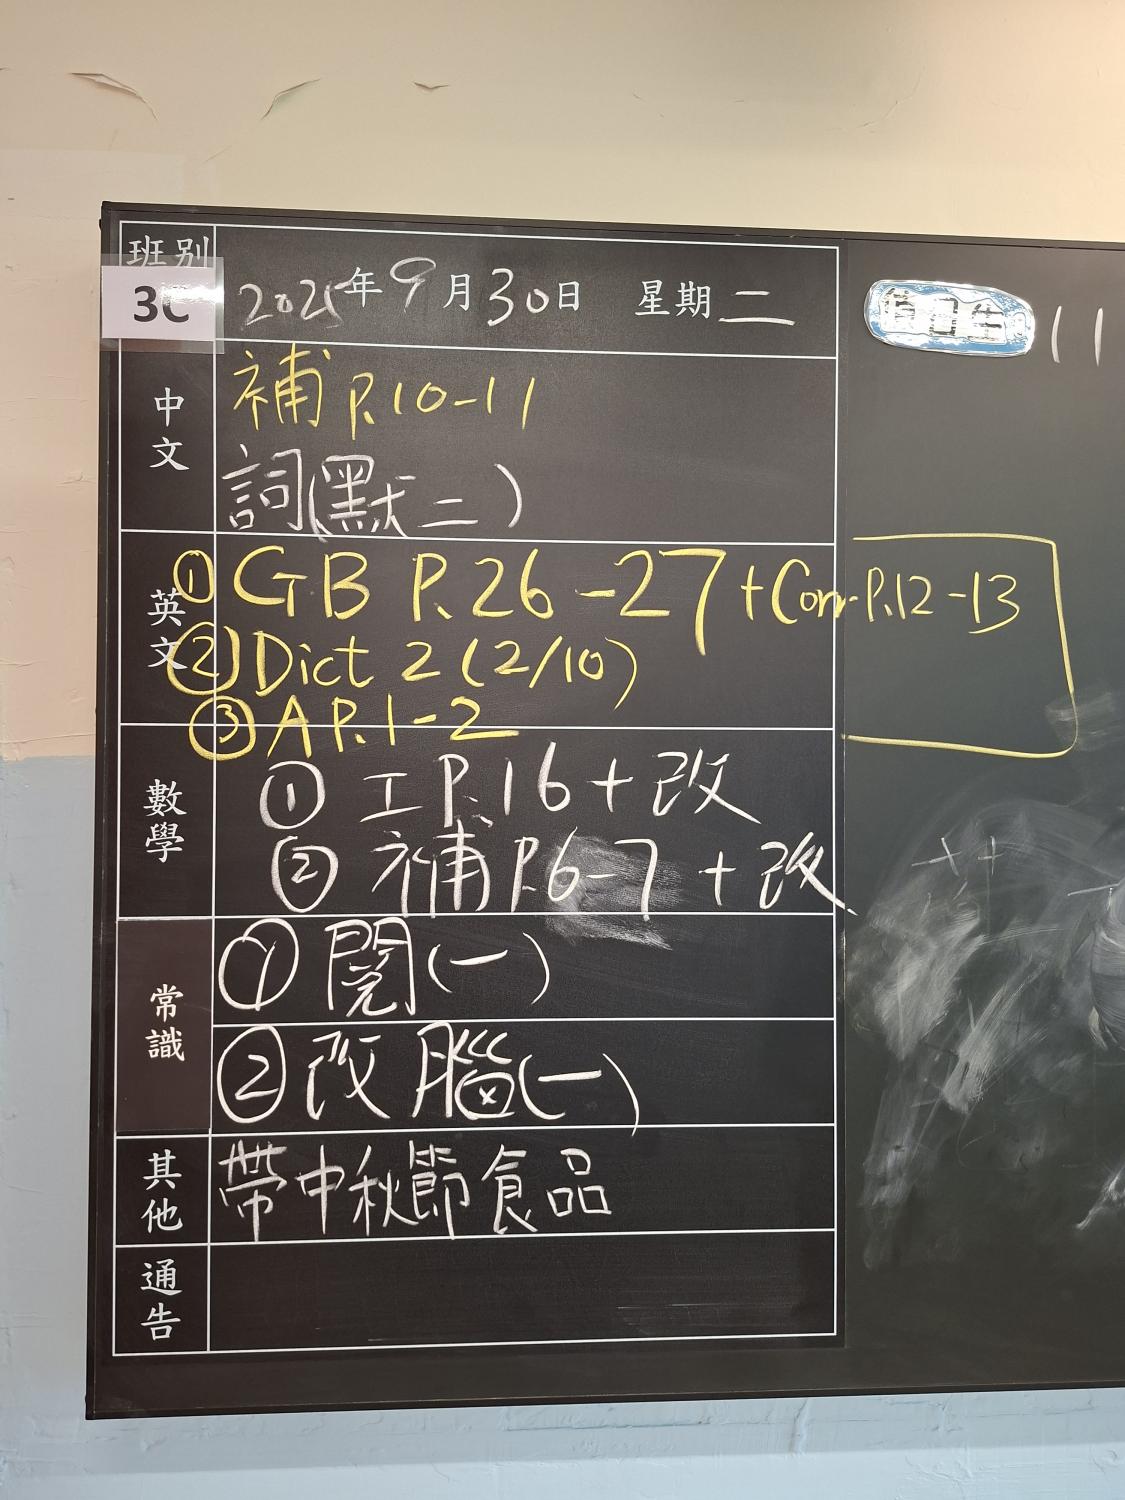 班別
3C
2025年9月30日 星期二
值日生 11
中文
補 P.10-11
詞(默二)
英文
① GB P.26-27 + Corr. P.12-13
② Dict 2 (2/10)
③ A P.1-2
數學
① 工 P.16 + 改
② 補 P.6-7 + 改
常識
① 閱(一)
② 改 腦(一)
其他
帶中秋節食品
通告